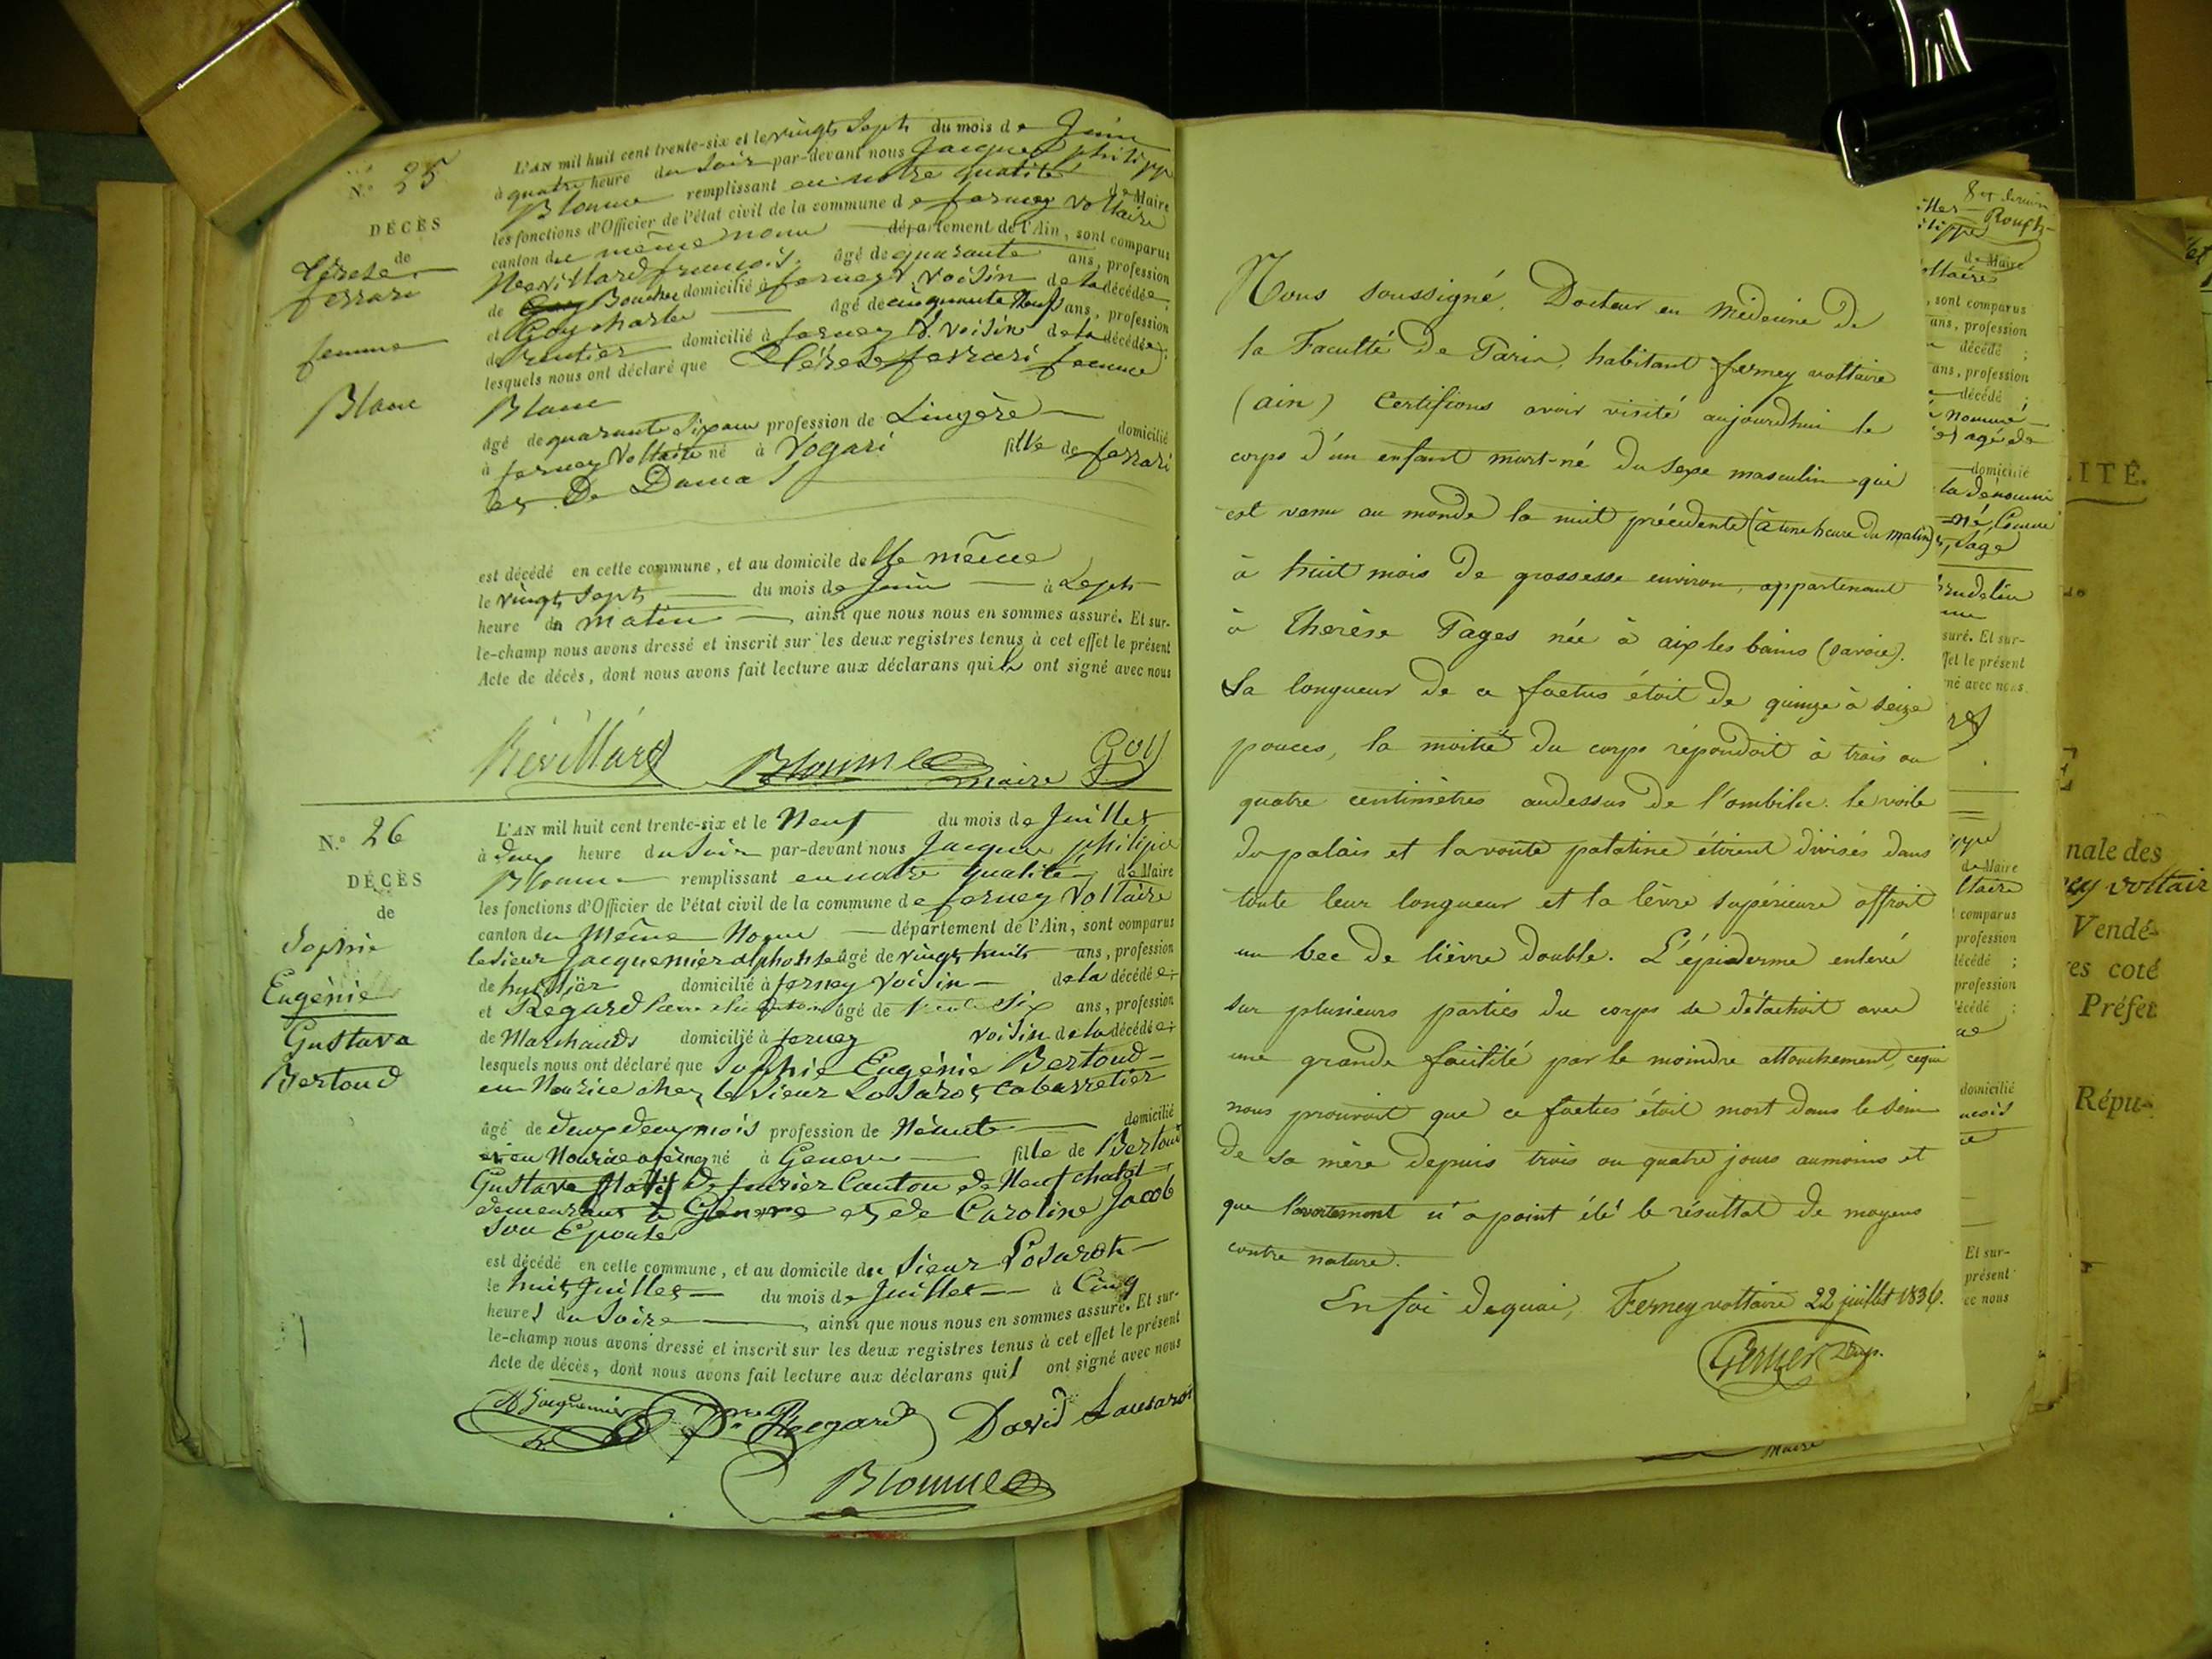 N.° 25
DÉCÈS
de
Térese
ferrari
femme
Blanc
L'AN mil huit cent trente-six et le vingt Sept du mois de Juin
à quatre heure du Soir par-devant nous Jacques philippe
Blonme remplissant en notre qualité de Maire
les fonctions d'Officier de l'état civil de la commune de ferney Voltaire
canton du même nom département de l'Ain, sont comparus
Revillard françois, âgé de quarante ans, profession
de Boucher domicilié à ferney V. voisin de la décédée;
et Goy charles âgé de cinquante Neuf ans, profession
de Rentier domicilié à ferney V. voisin de la décédée;
lesquels nous ont déclaré que Térese ferrari femme
Blanc
âgé de quarante Six ans profession de Lingère domicilié
à ferney Voltaire né à Vogari fille de ferrari
et De Dama
est décédé en cette commune, et au domicile de lle même
le vingt Sept du mois de Juin à Sept
heure du matin ainsi que nous nous en sommes assuré. Et sur-
le-champ nous avons dressé et inscrit sur les deux registres tenus à cet effet le présent
Acte de décès, dont nous avons fait lecture aux déclarans qui ont signé avec nous
Révillard Blonme maire Goy
N.° 26
DÉCÈS
de
Sophie
Eugénie
Gustava
Bertoud
L'AN mil huit cent trente-six et le Neuf du mois de Juillet
à deux heure du Soir par-devant nous Jacques philippe
Blonme remplissant en notre qualité de Maire
les fonctions d'Officier de l'état civil de la commune de ferney Voltaire
canton du Même Nom département de l'Ain, sont comparus
le Sieur Jacquemier alphonse âgé de vingt huit ans, profession
de huissier domicilié à ferney Voisin de la décédée;
et Regard âgé de Six ans, profession
de Marchand domicilié à ferney voisin de la décédée;
lesquels nous ont déclaré que Sophie Eugénie Bertoud
en Nourice chez le Sieur Losarot cabarretier
âgé de deux deux mois profession de Néant domicilié
en Nourice a ferney né à Geneve fille de Bertoud
Gustave Natif de fleurier Canton de Neufchatel
demeurant à Geneve et de Caroline Jacob
son Epouse
est décédé en cette commune, et au domicile du Sieur Losarot
le huit Juillet du mois de Juillet à Cinq
heures du Soire ainsi que nous nous en sommes assuré. Et sur-
le-champ nous avons dressé et inscrit sur les deux registres tenus à cet effet le présent
Acte de décès, dont nous avons fait lecture aux déclarans qui ont signé avec nous
A Jacquemier Regard David Lausarot
Blonme
Nous soussigné, Docteur en Médecine de
la Faculté de Paris, habitant ferney voltaire
(ain) Certifions avoir visité aujourdhui le
corps d'un enfant mort-né du sexe masculin qui
est venu au monde la nuit précédente (à une heure du matin)
à huit mois de grossesse environ, appartenant
à Therèse Pages née à aix les bains (savoie).
la longueur de ce foetus étoit de quinze à seize
pouces, la moitié du corps répondoit à trois ou
quatre centimètres audessus de l'ombilic. le voile
du palais et la voute palatine étoient divisés dans
toute leur longueur et la lèvre supérieure offroit
un bec de lièvre double. L'épiderme enlevé
sur plusieurs parties du corps se détachoit avec
une grande facilité par le moindre attouchement, ce qui
nous prouvoit que ce foetus étoit mort dans le sein
de sa mère depuis trois ou quatre jours aumoins et
que l'avortement n'a point été le résultat de moyens
contre nature.
En foi dequoi, Ferney voltaire 22 juillet 1836.
Gerlier
de Maire
sont comparus
ans, profession
décédé ;
ans, profession
décédé ;
nommé
domicilié
suré. Et sur-
et le présent
né avec nous
de Maire
ltaire
comparus
profession
écédé ;
profession
écédé ;
domicilié
Et sur-
présent
ec nous
maire
ITÉ.
nale des
ey voltair
Vendé-
es coté
Préfet
Répu-